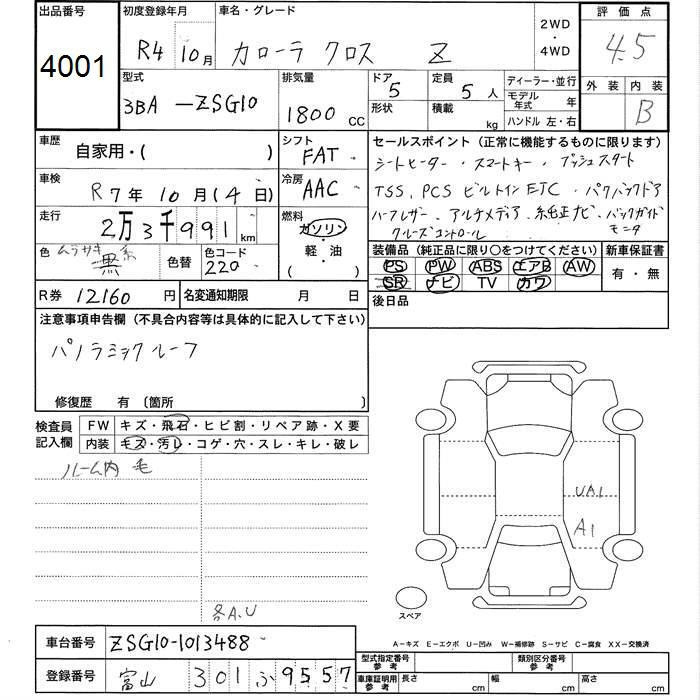 出品番号
4001
初度登録年月
R4 10月
車名・グレード
カローラ クロス Z
2WD
・
4WD
評価点
4.5
外装 内装
B
型式
3BA -ZSG10
排気量
1800 CC
ドア 5
形状
定員 5 人
積載 kg
ディーラー・並行
モデル年式 年
ハンドル 左・右
車歴
自家用・( )
シフト
FAT
セールスポイント(正常に機能するものに限ります)
シートヒーター・スマートキー・プッシュスタート
TSS、PCS ビルトインETC・パワーバックドア
ハーフレザー・アルチメディア・純正ナビ・バックガイド
クルーズコントロール モニタ
車検
R7年10月(4日)
冷房
AAC
走行
2万3千991km
燃料
ガソリン
・
軽・油
( )
色
ムラサキ系
黒
色替
色コード
220
装備品(純正品に限り○をつけてください)
PS PW ABS エアB AW
SR ナビ TV カワ
新車保証書
有・無
R券 12160円
名変通知期限 月 日
後日品
注意事項申告欄(不具合内容等は具体的に記入して下さい)
パノラミックルーフ
修復歴 有〔箇所 〕
検査員
記入欄
FW キズ・飛石・ヒビ割・リペア跡・X要
内装 キズ・汚レ・コゲ・穴・スレ・キレ・破レ
ルーム内 毛
UA1
A1
スペア
各A.U
A−キズ E−エクボ U−凹み W−補修跡 S−サビ C−腐食 XX−交換済
車台番号 ZSG10-1013488
登録番号 富山 301 ふ 9557
型式指定番号
参考
類別区分番号
参考
車庫証明用
参考
長さ cm 幅 cm 高さ cm